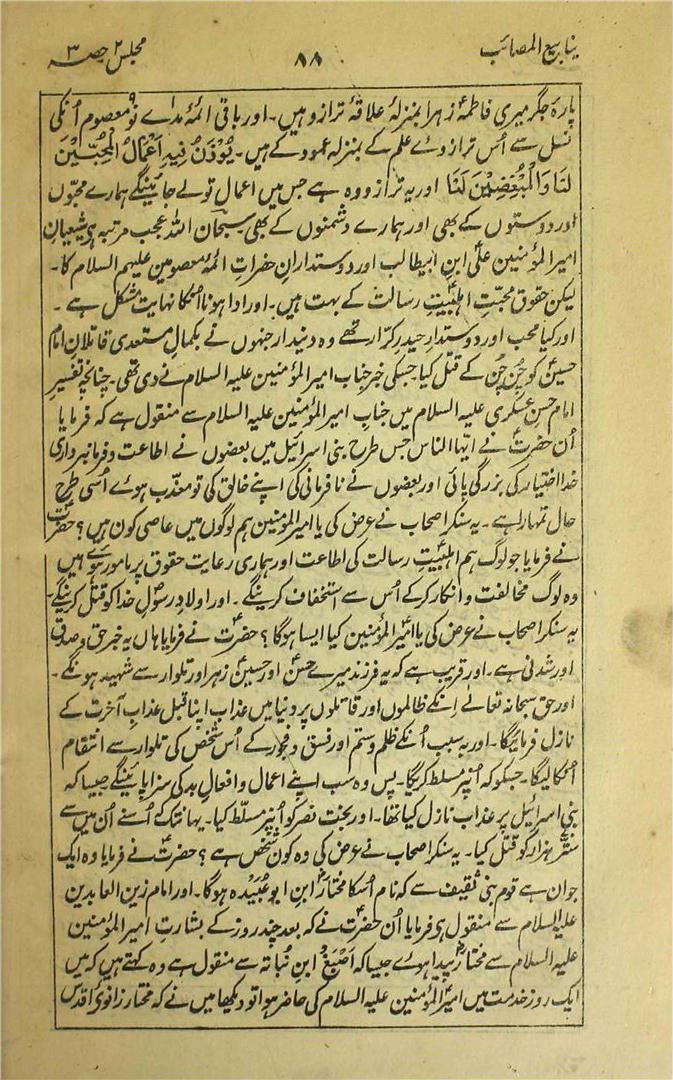 ینابیع المصائب
۸۸
مجلس ۲ حصہ ۳
پارۂ جگر میری فاطمہؑ زہرا بمنزلۂ علاقۂ ترازو ہیں۔ اور باقی ائمۂ ہداے نُو معصوم اُنکی
نسل سے اُس ترازوے علم کے بمنزلہ عمود کے ہیں۔ یُوْذَنُ فِیْہِ اَعْمَالُ الْمُحِبِّیْنَ
لَنَا وَالْمُبْغِضِیْنَ لَنَا اور یہ ترازو وہ ہے جس میں اعمال تولے جائینگے ہمارے محبوں
اور دوستوں کے بھی اور ہمارے دشمنوں کے بھی سبحان اللہ عجب مرتبہ ہی شیعیانِ
امیر المؤمنین علیؑ ابنِ ابیطالب اور دوستدارانِ حضراتِ ائمۂ معصومین علیہم السلام کا۔
لیکن حقوق محبّتِ اہلبیتِؑ رسالت کے بہت ہیں۔ اور ادا ہونا اُسکا نہایت مشکل ہے۔
اور کیا محب اور دوستدارِ حیدرِ کرّار تھے وہ دنیدار جنہوں نے بکمالِ مستعدی قاتلانِ امام
حسینؑ کو چُن چُن کے قتل کیا۔ جسکی خبر جنابِ امیر المؤمنین علیہ السلام نے دی تھی۔ چنانچہ تفسیرِ
امام حسن عسکری علیہ السلام میں جنابِ امیر المؤمنین علیہ السلام سے منقول ہے کہ فرمایا
اُن حضرتؑ نے ایّہا الناس جس طرح بنی اسرائیل میں بعضوں نے اطاعت و فرمانبرداری
خدا اختیار کی بزرگی پائی اور بعضوں نے نافرمانی کی اپنے خالق کی تو معذّب ہوے اُسی طرح
حال تمہارا ہے۔ یہ سنکر اصحاب نے عرض کی یا امیر المؤمنین ہم لوگوں میں عاصی کون ہیں؟ حضرتؑ
نے فرمایا جو لوگ ہم اہلبیتِؑ رسالت کی اطاعت اور ہماری رعایت حقوق پر مامور ہوے ہیں
وہ لوگ مخالفت و انکار کرکے اُس سے استخفاف کرینگے۔ اور اولادِ رسولِؐ خدا کو قتل کرینگے۔
یہ سنکر اصحاب نے عرض کی یا امیرؑ المؤمنین کیا ایسا ہوگا؟ حضرتؑ نے فرمایا ہاں یہ خبر حق و صدق
اور شدنی ہے۔ اور قریب ہے کہ یہ فرزند میرے حسنؑ اور حسینؑ زہر اور تلوار سے شہید ہونگے۔
اور حق سبحانہ تعالے اِنکے ظالموں اور قاتلوں پر دنیا میں عذاب اپنا قبل عذابِ آخرت کے
نازل فرمائیگا۔ اور بہ سبب اُنکے ظلم و ستم اور فسق و فجور کے اُس شخص کی تلوار سے انتقام
اُنکا لیگا۔ جسکو کہ اُنپر مسلط کریگا۔ پس وہ سب اپنے اعمال و افعالِ بد کی سزا پائینگے جیسا کہ
بنی اسرائیل پر عذاب نازل کیا تھا۔ اور بخت نصر کو اُنپر مسلّط کیا۔ یہانتک کہ اُسنے اُن میں سے
ستّر ہزار کو قتل کیا۔ یہ سنکر اصحاب نے عرض کی وہ کون شخص ہے؟ حضرتؑ نے فرمایا وہ ایک
جوان ہے قومِ بنی ثقیف سے کہ نام اُسکا مختارؒ ابنِ ابو عُبَیْدہ ہوگا۔ اور امام زین العابدین
علیہ السلام سے منقول ہی فرمایا اُن حضرتؑ نے کہ بعد چند روز کے بشارتِ امیر المؤمنین
علیہ السلام سے مختارؒ پیدا ہوے جیسا کہ اَصْبَغ ابنِ نُباتہ سے منقول ہے وہ کہتے ہیں کہ میں
ایک روز خدمت میں امیرؑ المؤمنین علیہ السلام کی حاضر ہوا تو دیکھا میں نے کہ مختار زانوی اقدس